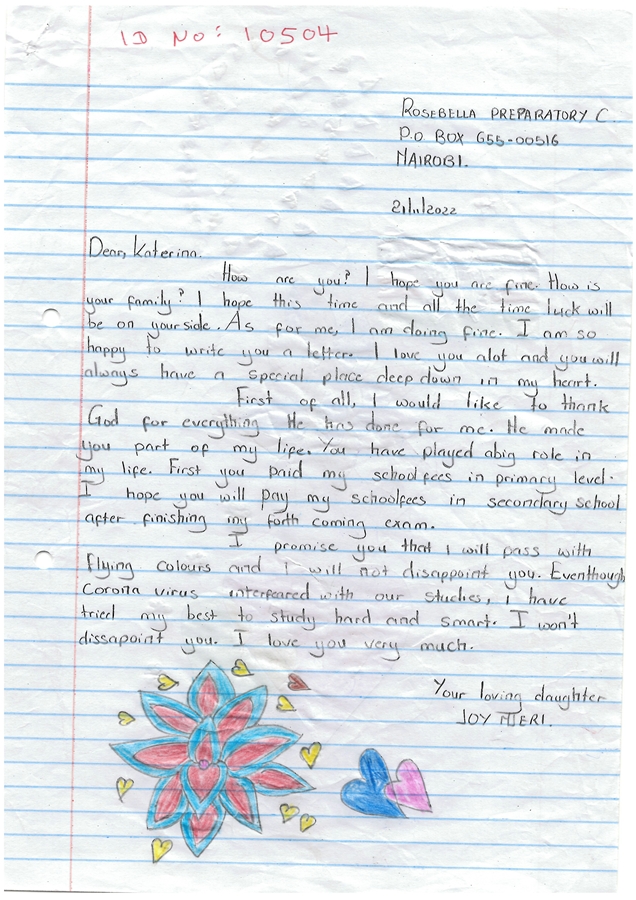 ID NO: 10504
ROSEBELLA PREPARATORY C.
P.O BOX 655-00516
NAIROBI.
21/11/2022
Dear, Katerina.
How are you? I hope you are fine. How is
your family? I hope this time and all the time luck will
be on your side. As for me, I am doing fine. I am so
happy to write you a letter. I love you alot and you will
always have a special place deep down in my heart.
First of all, I would like to thank
God for everything He has done for me. He made
you part of my life. You have played abig role in
my life. First you paid my school fees in primary level.
I hope you will pay my schoolfees in secondary school
after finishing my forth coming exam.
I promise you that I will pass with
flying colours and I will not disappoint you. Eventhough
Corona virus interfeared with our studies, I have
tried my best to study hard and smart. I won't
dissapoint you. I love you very much.
Your loving daughter
JOY NJERI.